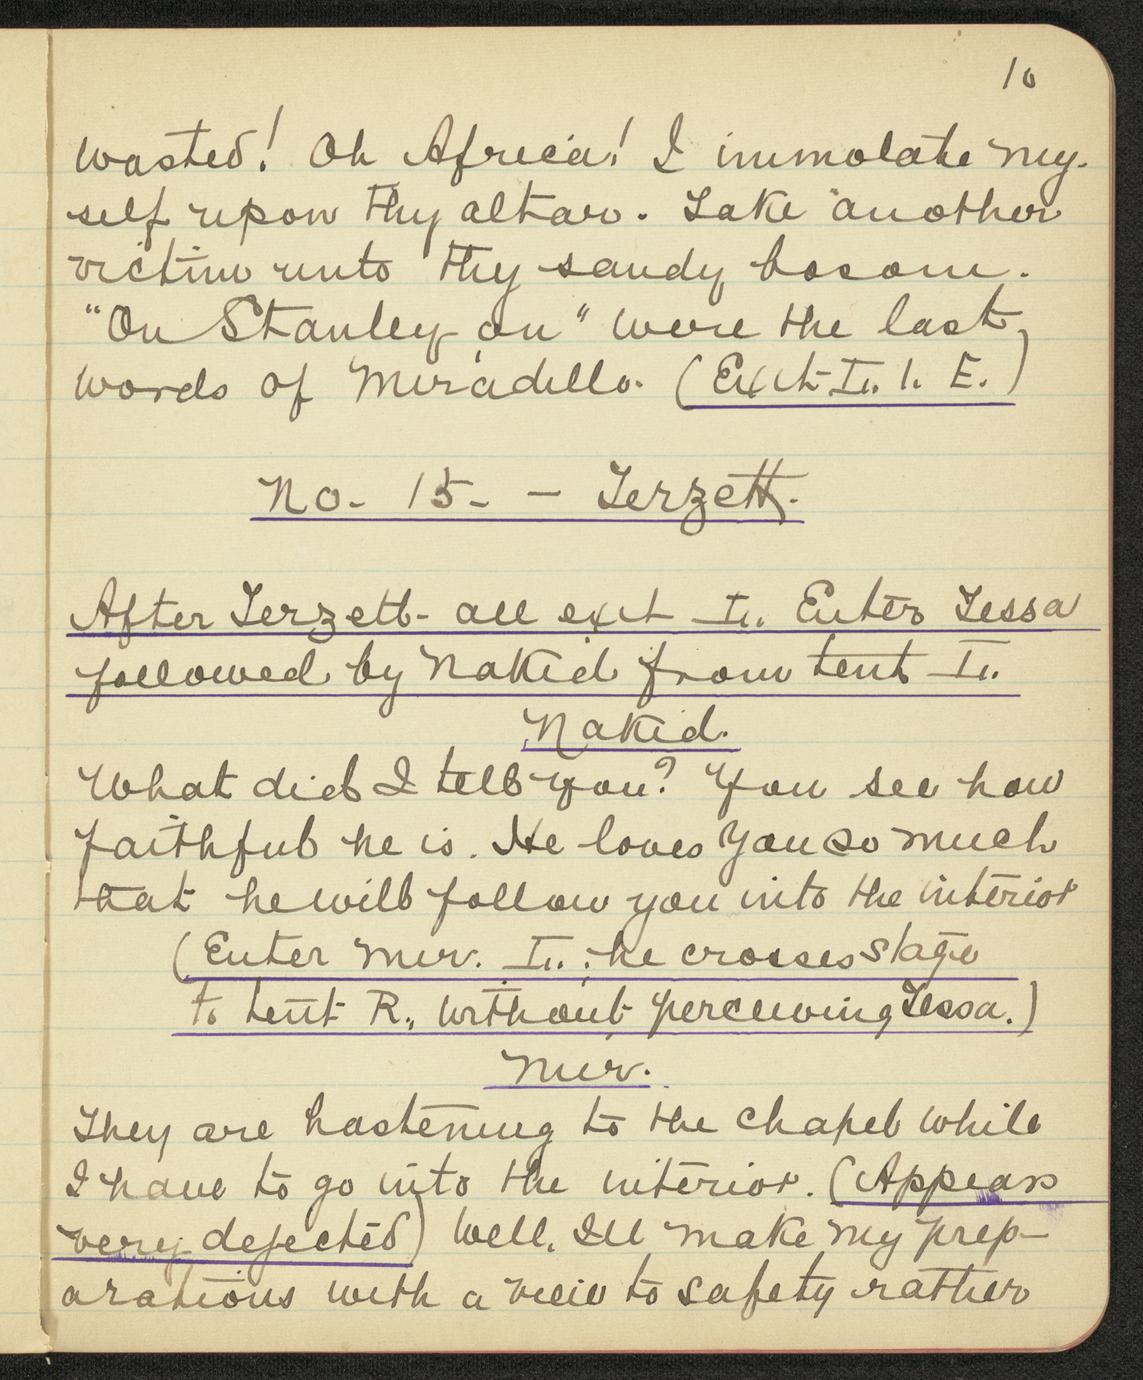 10
wasted! Oh Africa! I immolate my-
self upon thy altar. Take another
victim unto thy sandy bosom.
"On Stanley on" were the last
words of Miradillo. (Exit L. 1. E.)
No. 15 - Terzett.
After Terzett - all exit L. Enter Tessa
followed by Nakid from tent L.
Nakid.
What did I tell you? You see how
faithful he is. He loves you so much
that he will follow you into the interior
(Enter Mir. L.; he crosses stage
to tent R., without perceiving Tessa.)
Mir.
They are hastening to the chapel while
I have to go into the interior. (Appears
very dejected) Well, I'll make my prep-
arations with a view to safety rather